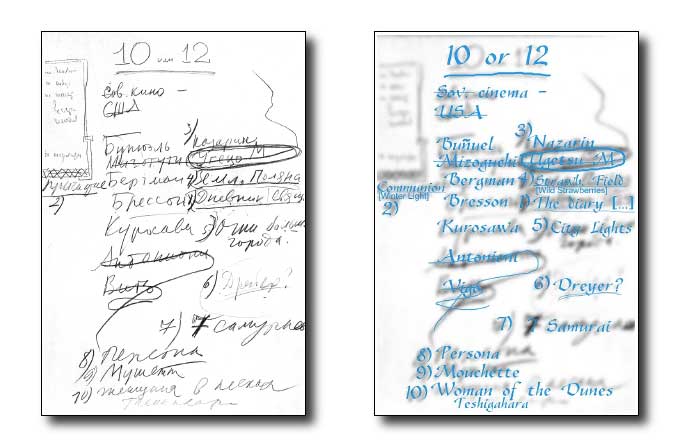 10 или 12
Сов. кино -
США
Бунюэль 3) Назарин
Мизогути Угецу М
Бергман 4) Земл. Поляна
Причастие Брессон 1) Дневник
2)
Куросава 5) Огни больш.
города.
Антониони
Виго 6) Дрейер?
7) 7 Самураев
8) Персона
9) Мушетт
10) Женщина в песках
Тешигахара
10 or 12
Sov. cinema -
USA
Buñuel 3) Nazarin
Mizoguchi Ugetsu M
Bergman 4) Strawb. Field
[Wild Strawberries]
Communion
[Winter Light]
2)
Bresson 1) The diary [...]
Kurosawa 5) City Lights
Antonioni
Vigo 6) Dreyer?
7) 7 Samurai
8) Persona
9) Mouchette
10) Woman of the Dunes
Teshigahara